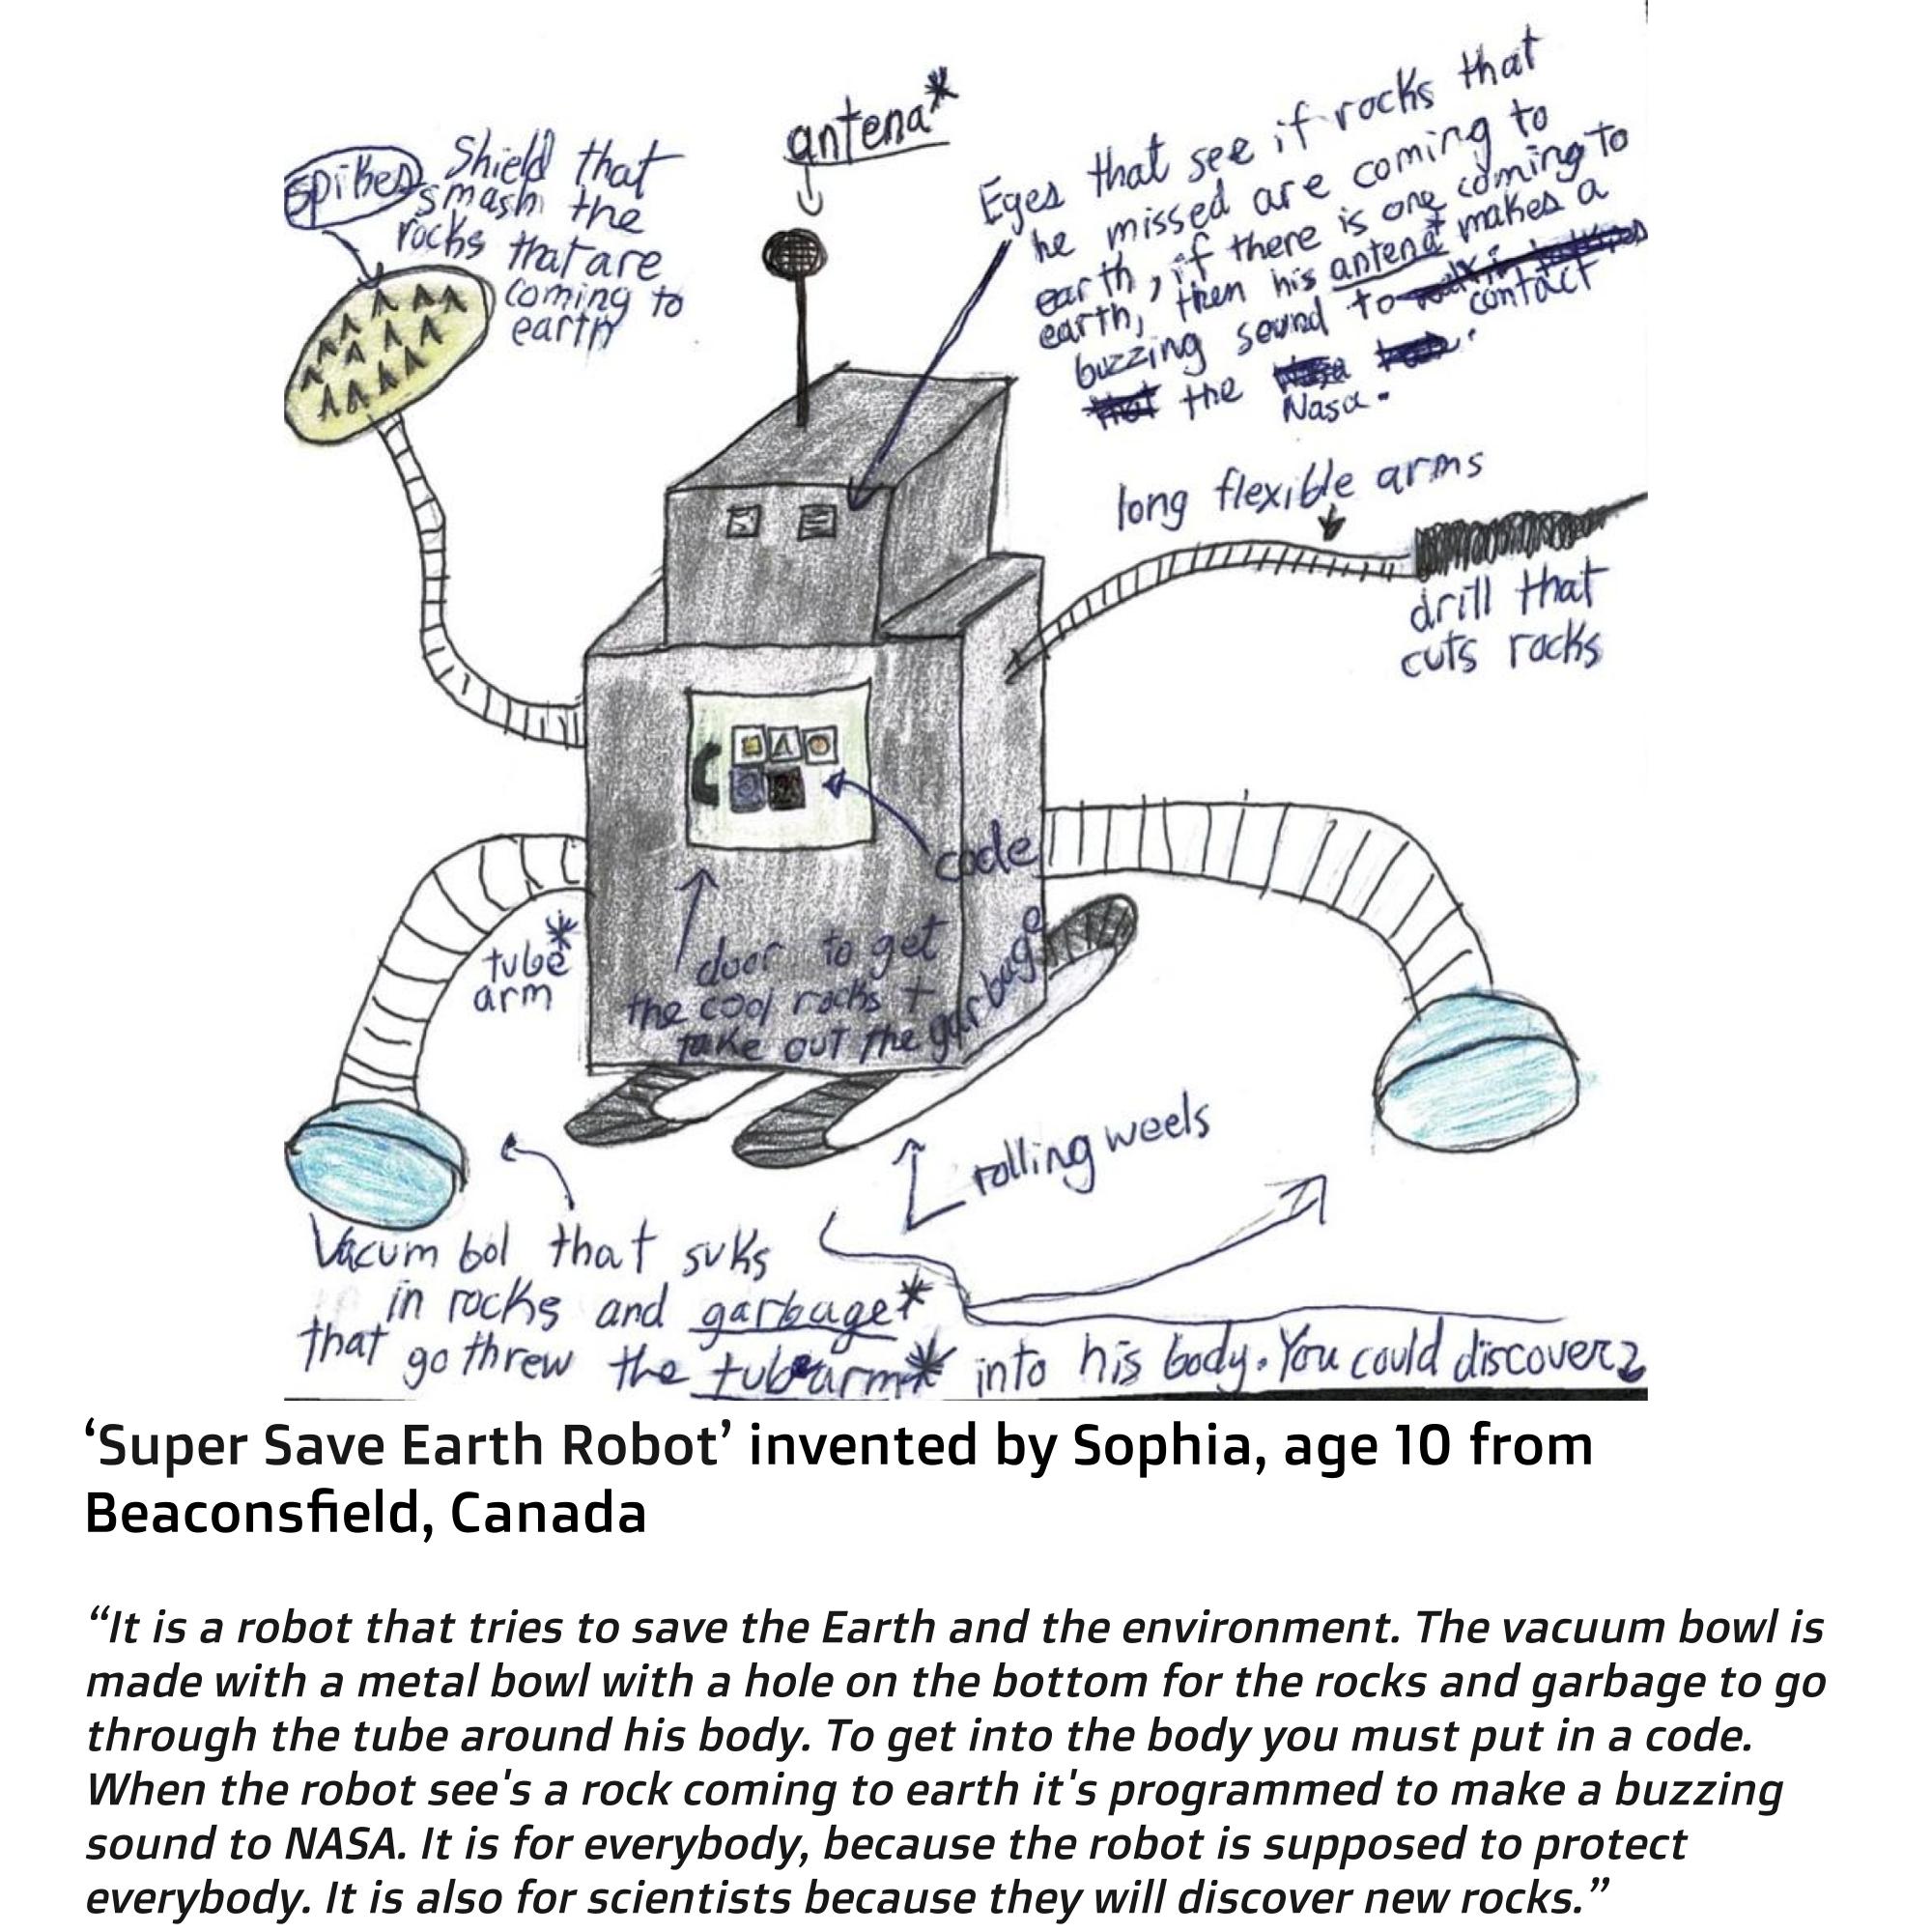 antena*
spikes
Shield that
smash the
rocks that are
coming to
earth
Eyes that see if rocks that
he missed are coming to
earth, if there is one coming to
earth, then his antena* makes a
buzzing sound to
contact
the
Nasa.
long flexible arms
drill that
cuts rocks
code
door to get
the cool rocks +
take out the garbage
tube*
arm
rolling weels
Vacum bol that suks
in rocks and garbage*
that go threw the tube arm* into his body. You could discover
‘Super Save Earth Robot’ invented by Sophia, age 10 from
Beaconsfield, Canada
“It is a robot that tries to save the Earth and the environment. The vacuum bowl is
made with a metal bowl with a hole on the bottom for the rocks and garbage to go
through the tube around his body. To get into the body you must put in a code.
When the robot see's a rock coming to earth it's programmed to make a buzzing
sound to NASA. It is for everybody, because the robot is supposed to protect
everybody. It is also for scientists because they will discover new rocks.”